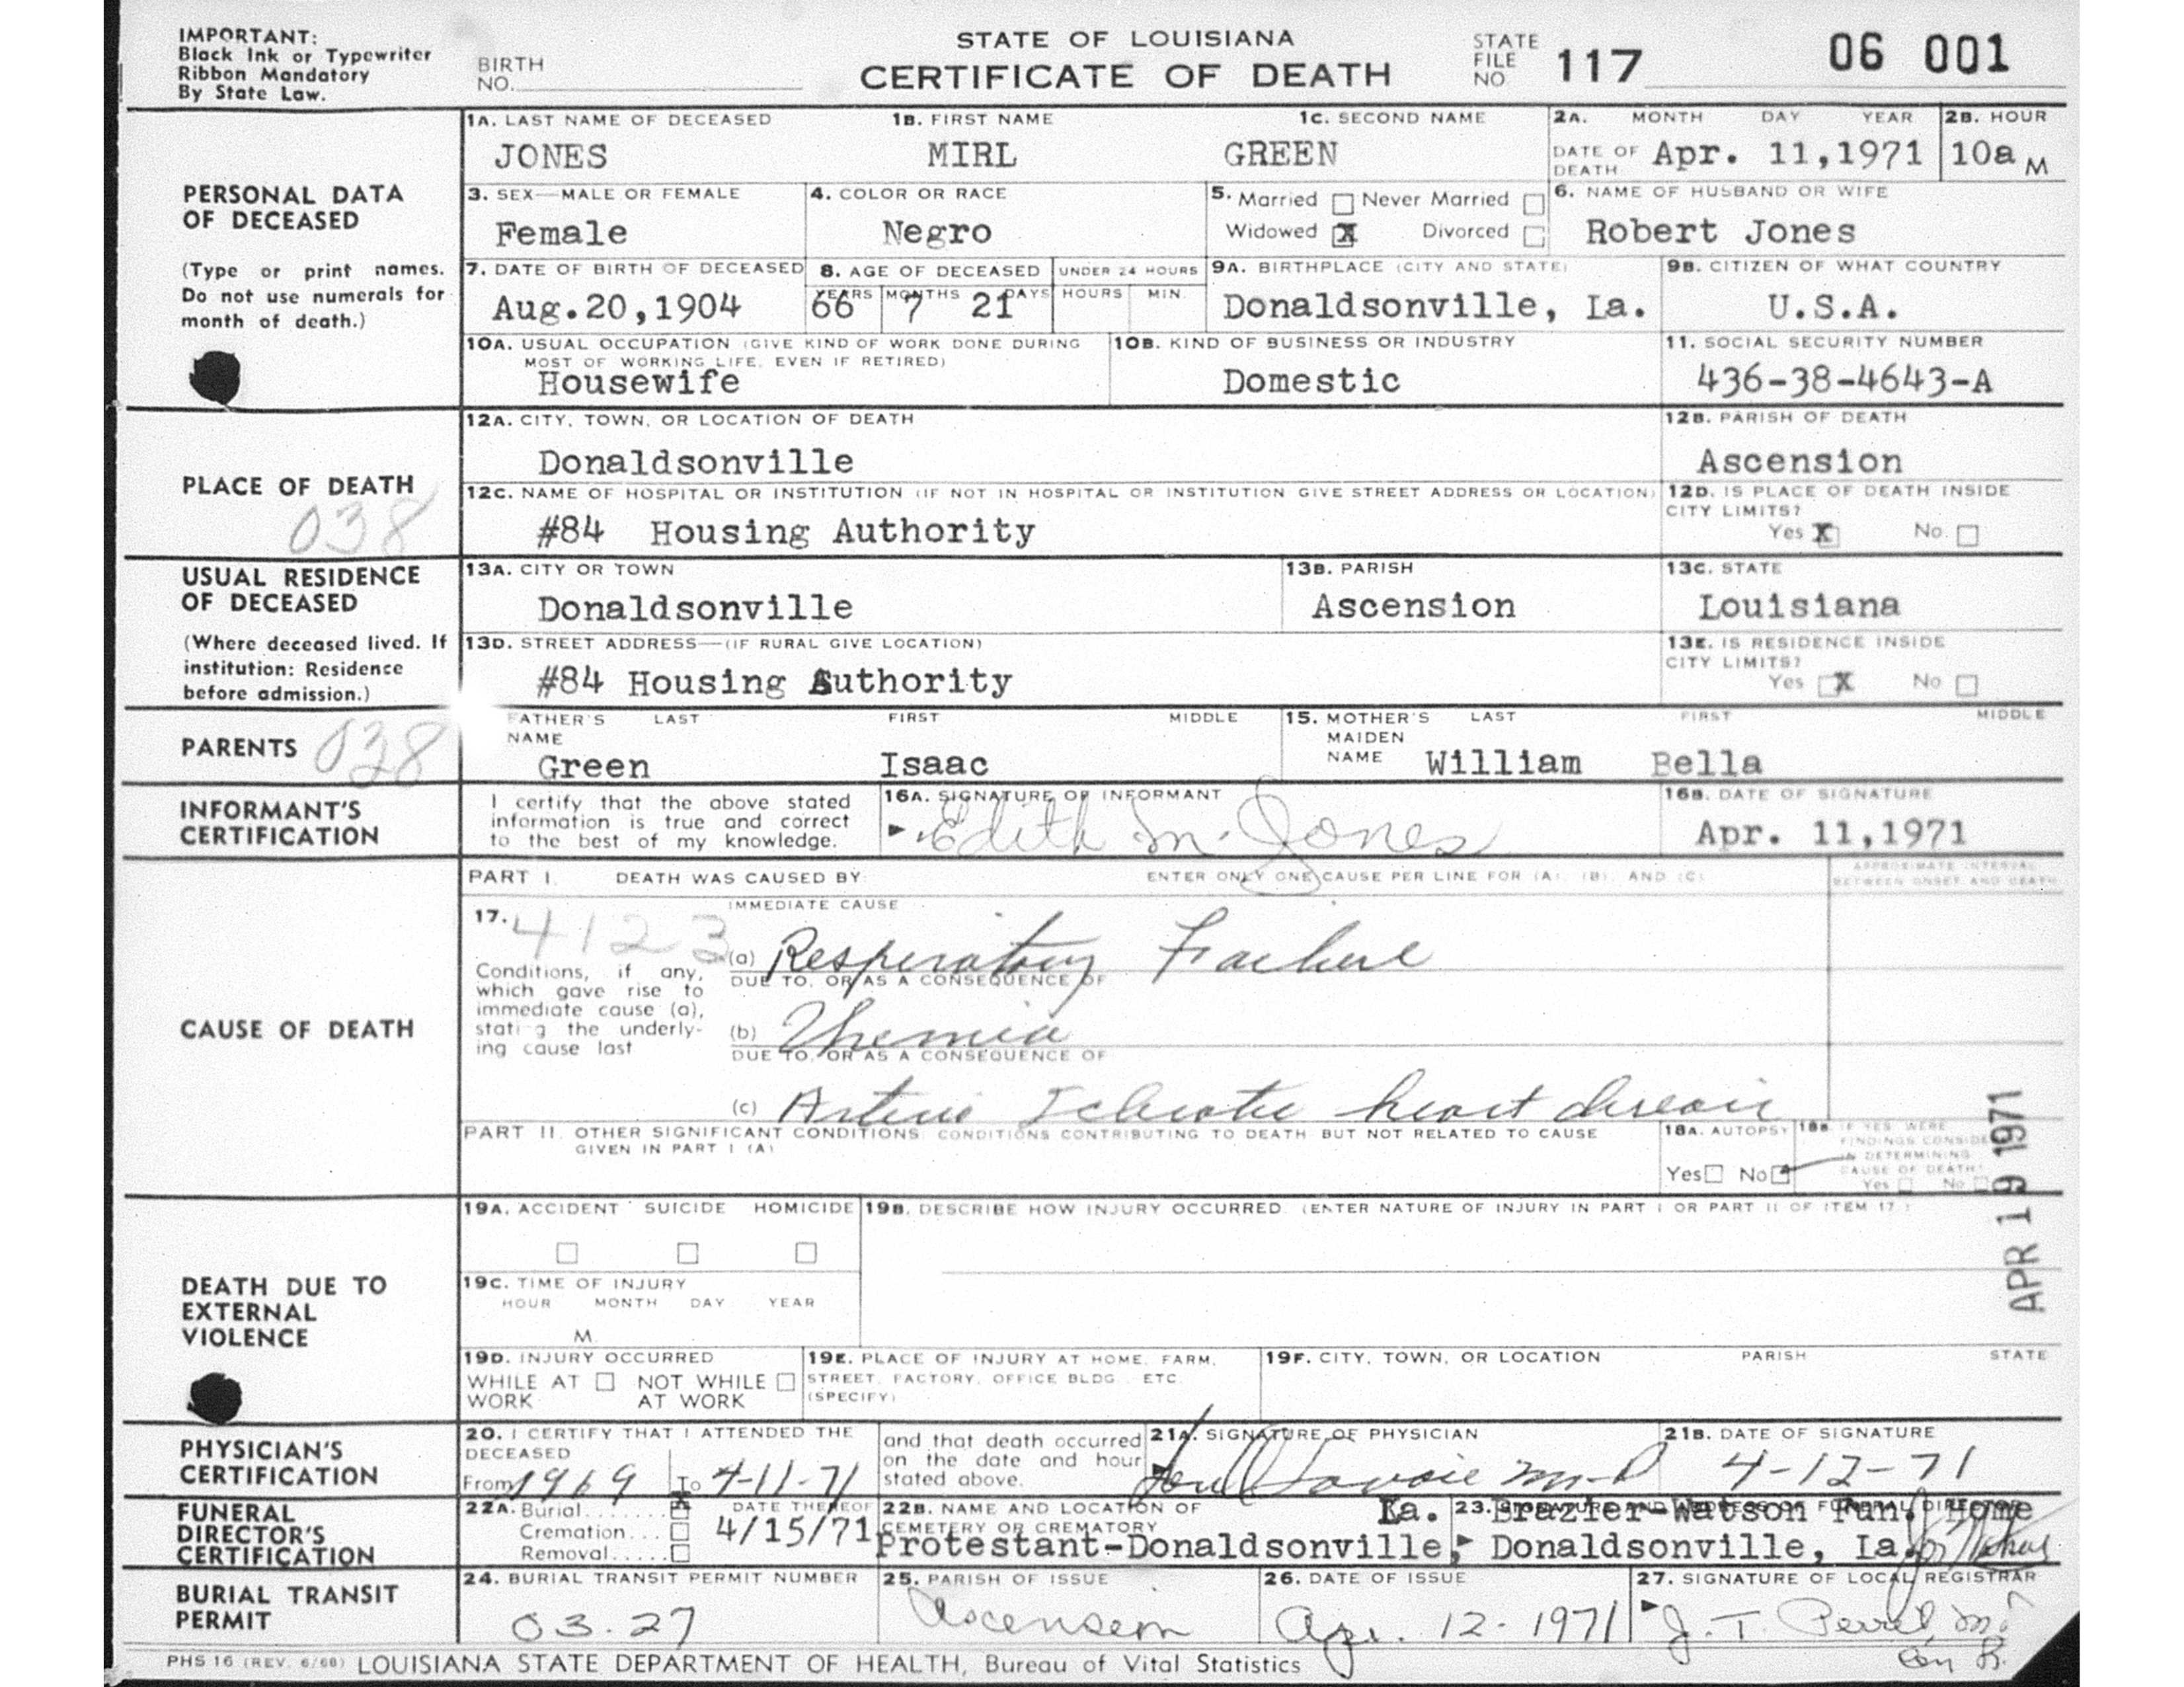 IMPORTANT:
Black Ink or Typewriter
Ribbon Mandatory
By State Law.
BIRTH
NO.
STATE OF LOUISIANA
CERTIFICATE OF DEATH
STATE
FILE
NO.
117
06 001
PERSONAL DATA
OF DECEASED
(Type or print names.
Do not use numerals for
month of death.)
1A. LAST NAME OF DECEASED
1B. FIRST NAME
1C. SECOND NAME
2A. MONTH DAY YEAR
2B. HOUR
JONES
MIRL
GREEN
DATE OF
DEATH
Apr. 11,1971
10a M
3. SEX—MALE OR FEMALE
Female
4. COLOR OR RACE
Negro
5. Married Never Married
Widowed X Divorced
6. NAME OF HUSBAND OR WIFE
Robert Jones
7. DATE OF BIRTH OF DECEASED
Aug.20,1904
8. AGE OF DECEASED
UNDER 24 HOURS
YEARS MONTHS DAYS HOURS MIN.
66 7 21
9A. BIRTHPLACE (CITY AND STATE)
Donaldsonville, La.
9B. CITIZEN OF WHAT COUNTRY
U.S.A.
10A. USUAL OCCUPATION (GIVE KIND OF WORK DONE DURING
MOST OF WORKING LIFE, EVEN IF RETIRED)
Housewife
10B. KIND OF BUSINESS OR INDUSTRY
Domestic
11. SOCIAL SECURITY NUMBER
436-38-4643-A
PLACE OF DEATH
038
12A. CITY, TOWN, OR LOCATION OF DEATH
Donaldsonville
12B. PARISH OF DEATH
Ascension
12C. NAME OF HOSPITAL OR INSTITUTION (IF NOT IN HOSPITAL OR INSTITUTION GIVE STREET ADDRESS OR LOCATION)
#84 Housing Authority
12D. IS PLACE OF DEATH INSIDE
CITY LIMITS?
Yes X No
USUAL RESIDENCE
OF DECEASED
(Where deceased lived. If
institution: Residence
before admission.)
13A. CITY OR TOWN
Donaldsonville
13B. PARISH
Ascension
13C. STATE
Louisiana
13D. STREET ADDRESS—(IF RURAL GIVE LOCATION)
#84 Housing Authority
13E. IS RESIDENCE INSIDE
CITY LIMITS?
Yes X No
PARENTS
038
FATHER'S LAST FIRST MIDDLE
NAME
Green Isaac
15. MOTHER'S LAST FIRST MIDDLE
MAIDEN
NAME William Bella
INFORMANT'S
CERTIFICATION
I certify that the above stated
information is true and correct
to the best of my knowledge.
16A. SIGNATURE OF INFORMANT
Edith M. Jones
16B. DATE OF SIGNATURE
Apr. 11,1971
CAUSE OF DEATH
PART I. DEATH WAS CAUSED BY: ENTER ONLY ONE CAUSE PER LINE FOR (A), (B), AND (C)
APPROXIMATE INTERVAL
BETWEEN ONSET AND DEATH
IMMEDIATE CAUSE
17. 4123
(a) Respiratory Failure
DUE TO, OR AS A CONSEQUENCE OF
Conditions, if any,
which gave rise to
immediate cause (a),
stati g the underly-
ing cause last
(b) Uremia
DUE TO, OR AS A CONSEQUENCE OF
(c) Arterio Sclerotic heart disease
PART II. OTHER SIGNIFICANT CONDITIONS: CONDITIONS CONTRIBUTING TO DEATH BUT NOT RELATED TO CAUSE
GIVEN IN PART I (A)
18A. AUTOPSY
Yes No
18B. IF YES, WERE
FINDINGS CONSIDE
IN DETERMINING
CAUSE OF DEATH?
Yes No
APR 19 1971
DEATH DUE TO
EXTERNAL
VIOLENCE
19A. ACCIDENT SUICIDE HOMICIDE
19B. DESCRIBE HOW INJURY OCCURRED. (ENTER NATURE OF INJURY IN PART I OR PART II OF ITEM 17.)
19C. TIME OF INJURY
HOUR MONTH DAY YEAR
M.
19D. INJURY OCCURRED
WHILE AT NOT WHILE
WORK AT WORK
19E. PLACE OF INJURY AT HOME, FARM,
STREET, FACTORY, OFFICE BLDG., ETC.
(SPECIFY)
19F. CITY, TOWN, OR LOCATION PARISH STATE
PHYSICIAN'S
CERTIFICATION
20. I CERTIFY THAT I ATTENDED THE
DECEASED
From 1969 To 4-11-71
and that death occurred
on the date and hour
stated above.
21A. SIGNATURE OF PHYSICIAN
M-D
21B. DATE OF SIGNATURE
4-12-71
FUNERAL
DIRECTOR'S
CERTIFICATION
22A. Burial....... X
Cremation...
Removal.....
DATE THEREOF
4/15/71
22B. NAME AND LOCATION OF
CEMETERY OR CREMATORY
La.
Protestant-Donaldsonville,
23. SIGNATURE AND ADDRESS OF FUNERAL DIRECTOR
Brazier-Watson Fun. Home
Donaldsonville, La.
BURIAL TRANSIT
PERMIT
24. BURIAL TRANSIT PERMIT NUMBER
03-27
25. PARISH OF ISSUE
Ascension
26. DATE OF ISSUE
Apr. 12-1971
27. SIGNATURE OF LOCAL REGISTRAR
J. T.
PHS 16 (REV. 6/68) LOUISIANA STATE DEPARTMENT OF HEALTH, Bureau of Vital Statistics